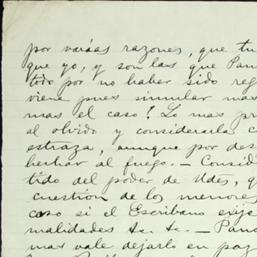 por varias razones, que tu
que yo, y son las que Pan
todo por no haber sido reg
viene pues simular mas
mas el caso? Lo mas pr
al olvido y considerarla c
estraza, aunque por des
hechar al fuego. — Consid
tido del poder de Udes, q
cuestión de los menores
caso si el Escribano exije
malidades &. &. — Panc
mas vale dejarlo en paz